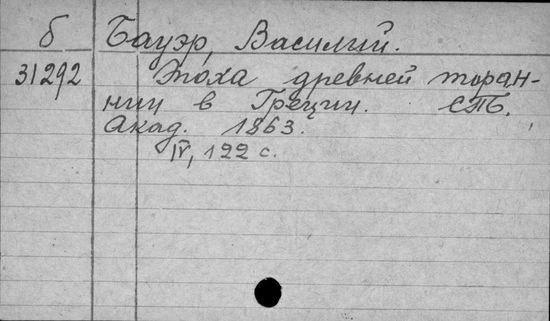 б Бауэр, Василий.
31292 Эпоха древней тиран-
нии в Греции. СПб.
Акад. 1863.
IV, 122 с.